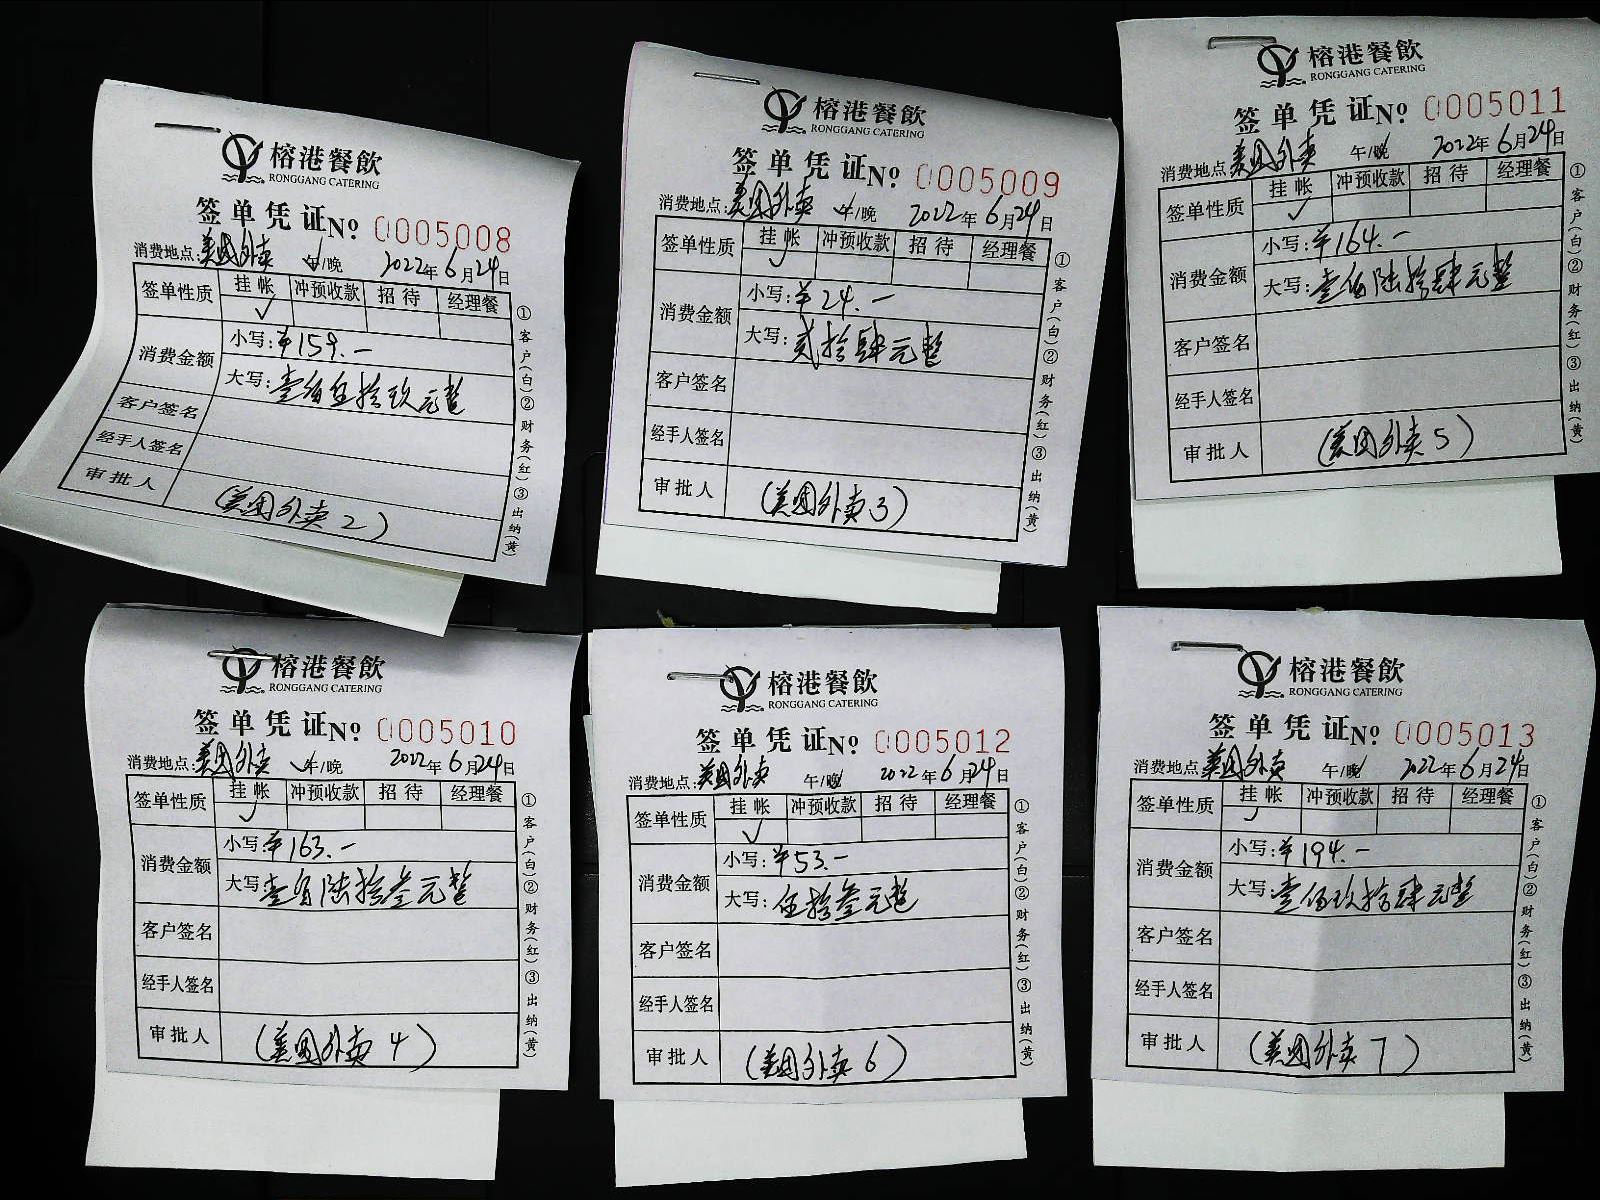 榕港餐飲
RONGGANG CATERING
签单凭证 No 0005008
消费地点:美团外卖 午/晚 2022年6月24日
签单性质 挂帐 冲预收款 招待 经理餐
✓
消费金额 小写:¥159.-
大写:壹佰伍拾玖元整
客户签名
经手人签名
审批人 (美团外卖2)
①客户(白)②财务(红)③出纳(黄)
榕港餐飲
RONGGANG CATERING
签单凭证 No 0005009
消费地点:美团外卖 午/晚 2022年6月24日
签单性质 挂帐 冲预收款 招待 经理餐
✓
消费金额 小写:¥24.-
大写:贰拾肆元整
客户签名
经手人签名
审批人 (美团外卖3)
①客户(白)②财务(红)③出纳(黄)
榕港餐飲
RONGGANG CATERING
签单凭证 No 0005011
消费地点:美团外卖 午/晚 2022年6月24日
签单性质 挂帐 冲预收款 招待 经理餐
✓
消费金额 小写:¥164.-
大写:壹佰陆拾肆元整
客户签名
经手人签名
审批人 (美团外卖5)
①客户(白)②财务(红)③出纳(黄)
榕港餐飲
RONGGANG CATERING
签单凭证 No 0005010
消费地点:美团外卖 午/晚 2022年6月24日
签单性质 挂帐 冲预收款 招待 经理餐
✓
消费金额 小写:¥163.-
大写:壹佰陆拾叁元整
客户签名
经手人签名
审批人 (美团外卖4)
①客户(白)②财务(红)③出纳(黄)
榕港餐飲
RONGGANG CATERING
签单凭证 No 0005012
消费地点:美团外卖 午/晚 2022年6月24日
签单性质 挂帐 冲预收款 招待 经理餐
✓
消费金额 小写:¥53.-
大写:伍拾叁元整
客户签名
经手人签名
审批人 (美团外卖6)
①客户(白)②财务(红)③出纳(黄)
榕港餐飲
RONGGANG CATERING
签单凭证 No 0005013
消费地点:美团外卖 午/晚 2022年6月24日
签单性质 挂帐 冲预收款 招待 经理餐
✓
消费金额 小写:¥194.-
大写:壹佰玖拾肆元整
客户签名
经手人签名
审批人 (美团外卖7)
①客户(白)②财务(红)③出纳(黄)